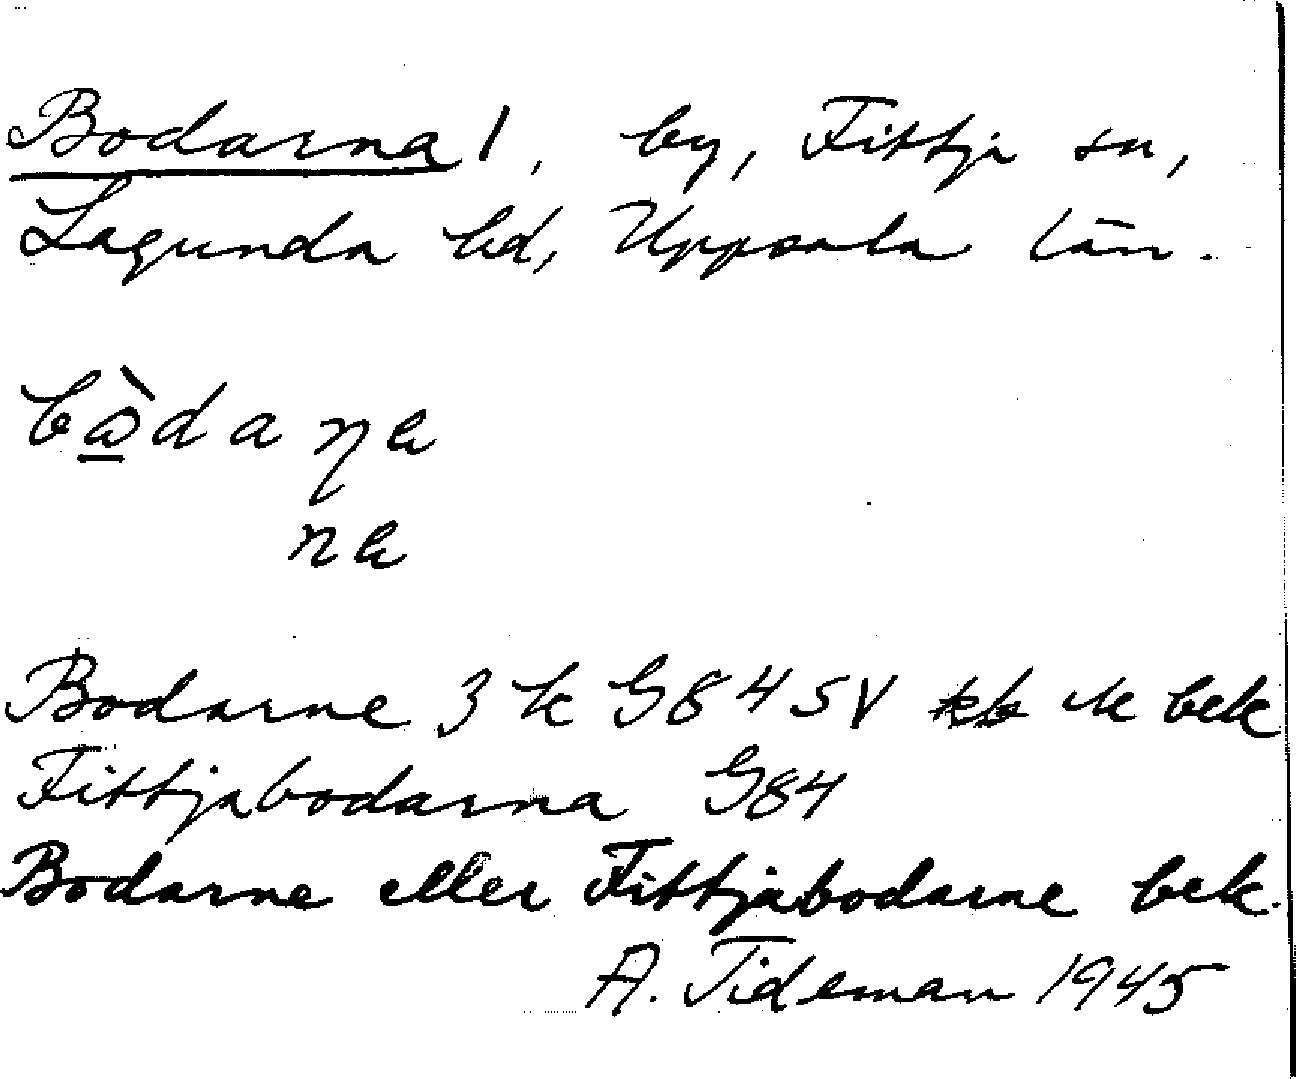 Bodarna 1, by, Fittja sn,
Lagunda hd, Uppsala län.
bὼ̱daṇa
na
Bodarne 3 k G84 SV bek
Fittjabodarna G84
Bodarne eller Fittjabodarne bek.
A. Tideman 1945